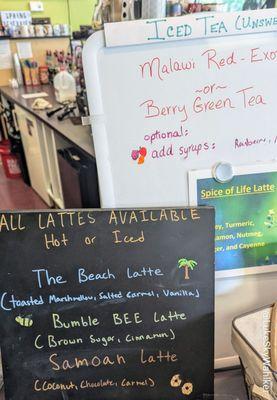 SPRING
ICED TEA (UNSWE
Malawi Red - Exo
~or~
Berry Green Tea
optional:
add syrups:
Spice of Life Latte
y, Turmeric,
amon, Nutmeg,
ger, and Cayenne
ALL LATTES AVAILABLE
Hot or Iced
The Beach Latte
(toasted Marshmallow, Salted Carmel, Vanilla)
Bumble BEE Latte
(Brown Sugar, Cinnamon)
Samoan Latte
(Coconut, Chocolate, Carmel)